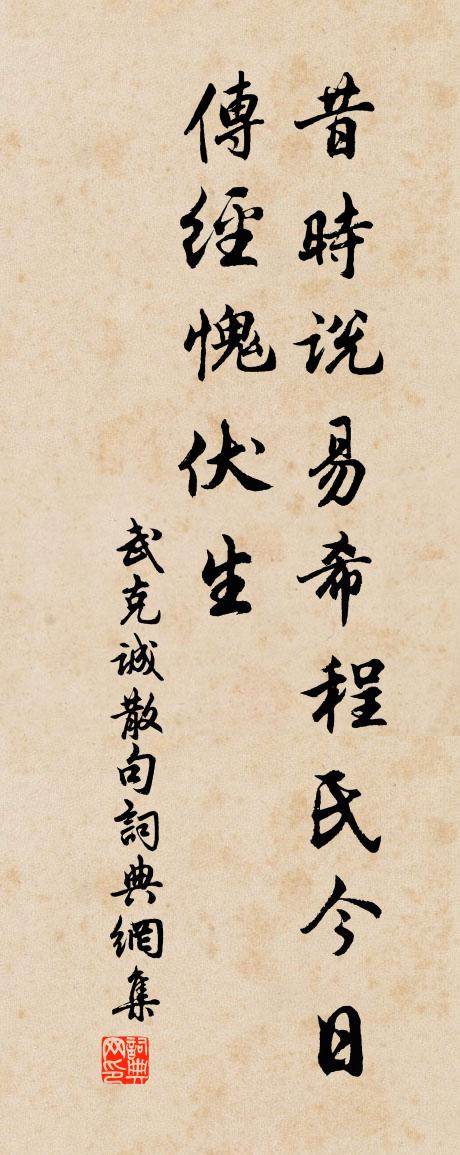 昔時説易希程氏今日
傳經愧伏生
武克诚散句詞典網集
詞典网印